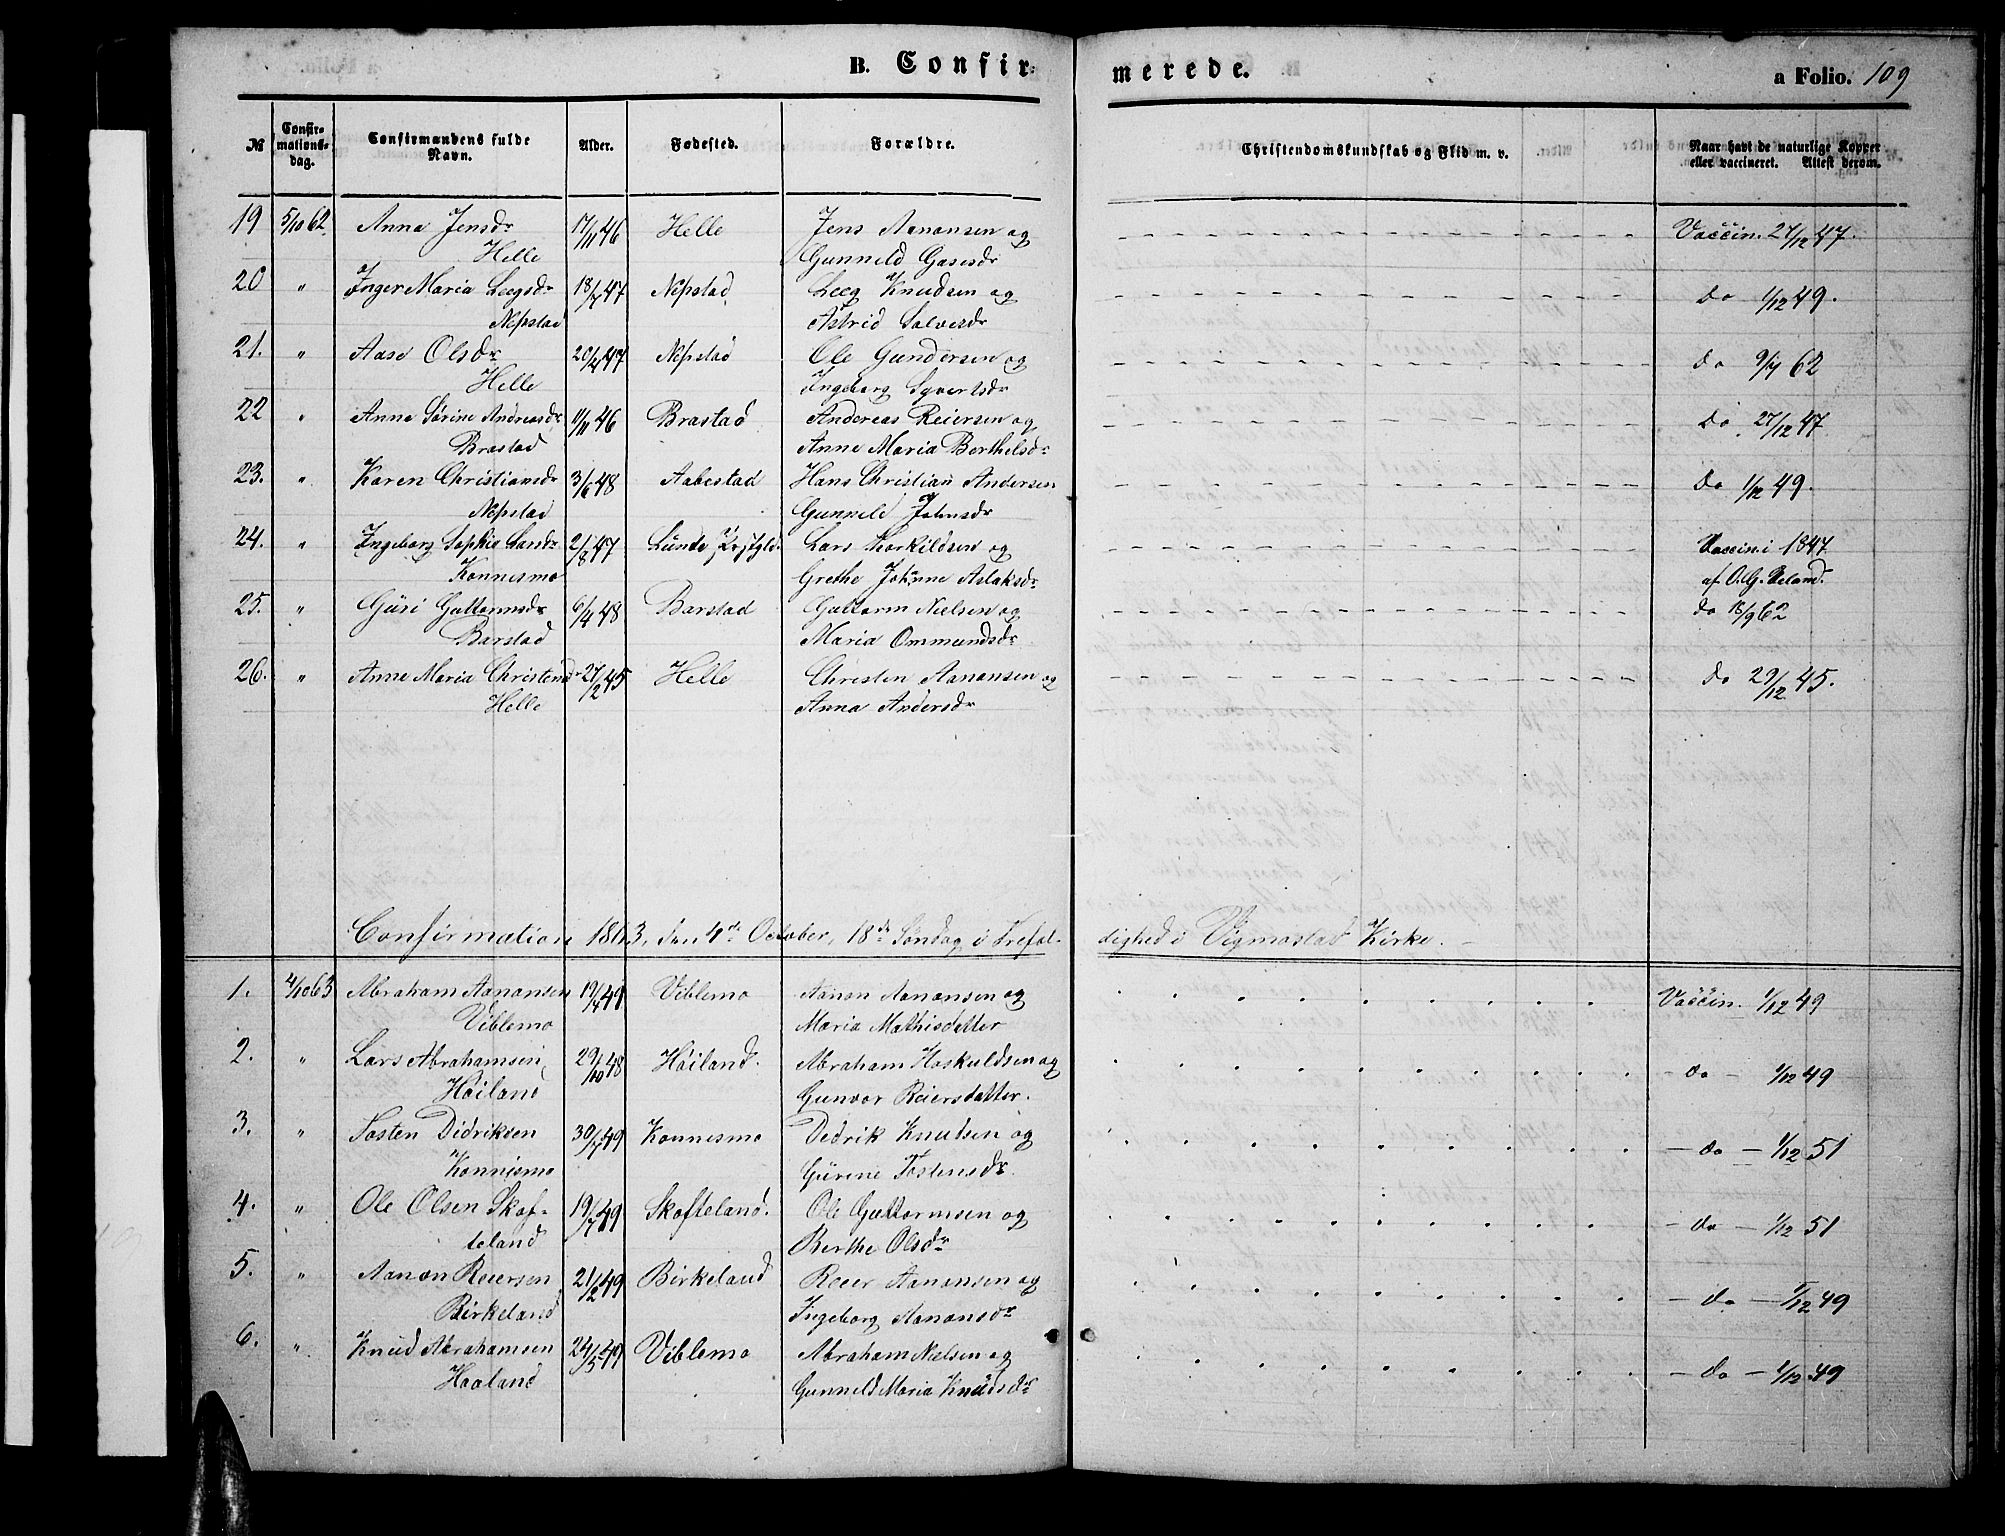 B. Confirmerede. a Folio. 109
№ Confirmationsdag. Confirmandens fulde Navn. Alder. Fødested. Forældre. Christendomskundskab og Flid m. v. Naar havt de naturlige Kopper eller vaccineret. Attest derom.
19 5/10 62. Anna Jensdr 17/11 46 Helle Jens Aanonsen og Vaccin. 27/12 47.
Helle Gunneld Gasesdr
20 " Inger Maria Leegsdr 18/7 47 Nepstad Leeg Knudsen og do 1/12 49.
Nepstad Astrid Salvesdr
21. " Aase Olsdr 20/4 47 Nepstad Ole Gundersen og do 9/7 62
Helle Ingeborg Syvertsdr
22 " Anne Sørine Andreasdr 11/11 46 Brastad Andereas Reiersen og do 27/12 47
Brastad Anne Maria Berthelsdr
23. " Karen Christiansdr 3/6 48 Aabestad Hans Christian Andersen do 1/12 49.
Nepstad og Gunneld Johnsdr
24. " Ingeborg Sophie Larsdr 2/8 47 Lunde Lars Torkildsen og Vaccin. i 1847
Konnesmo Grethe Johnne Aslaksdr af O. G. Ueland.
25. " Güri Guttormsdr 6/4 48 Barstad Guttorm Nielsen og do 18/9 62
Barstad Maria Ommundsdr
26. " Anne Maria Christensdr 27/2 45 Helle Christen Aanonsen og do 29/12 45.
Helle Anna Andersdr
Confirmation 1863, den 4de October, 18de Søndag i Trefoldighed i Vigmostad Kirke.
1. 4/10 63 Abraham Aanonsen 19/4 49 Viblemo Aanon Aanonsen og Vaccin. 1/12 49
Viblemo Maria Mathisdatter
2. " Lars Abrahamsen 29/10 48 Høiland. Abraham Haskuldsen og do 1/12 49
Høiland Gunvor Reiersdatter.
3. " Tosten Didriksen 30/7 49 Konnesmo Dedrik Knudsen og do 1/12 51
Konnismo Gürine Tostensdr.
4. " Ole Olsen Skof- 19/7 49 Skofteland. Ole Guttormsen og do 1/12 51
teland Berthe Olsdr
5. " Aanon Reiersen 21/2 49 Birkeland Reier Aanonsen og do 1/12 49
Birkeland Ingeborg Aanonsdr
6. " Knud Abrahamsen 24/5 49 Viblemo Abraham Nielsen og do 1/12 49
Haaland Gunneld Maria Knudsdr